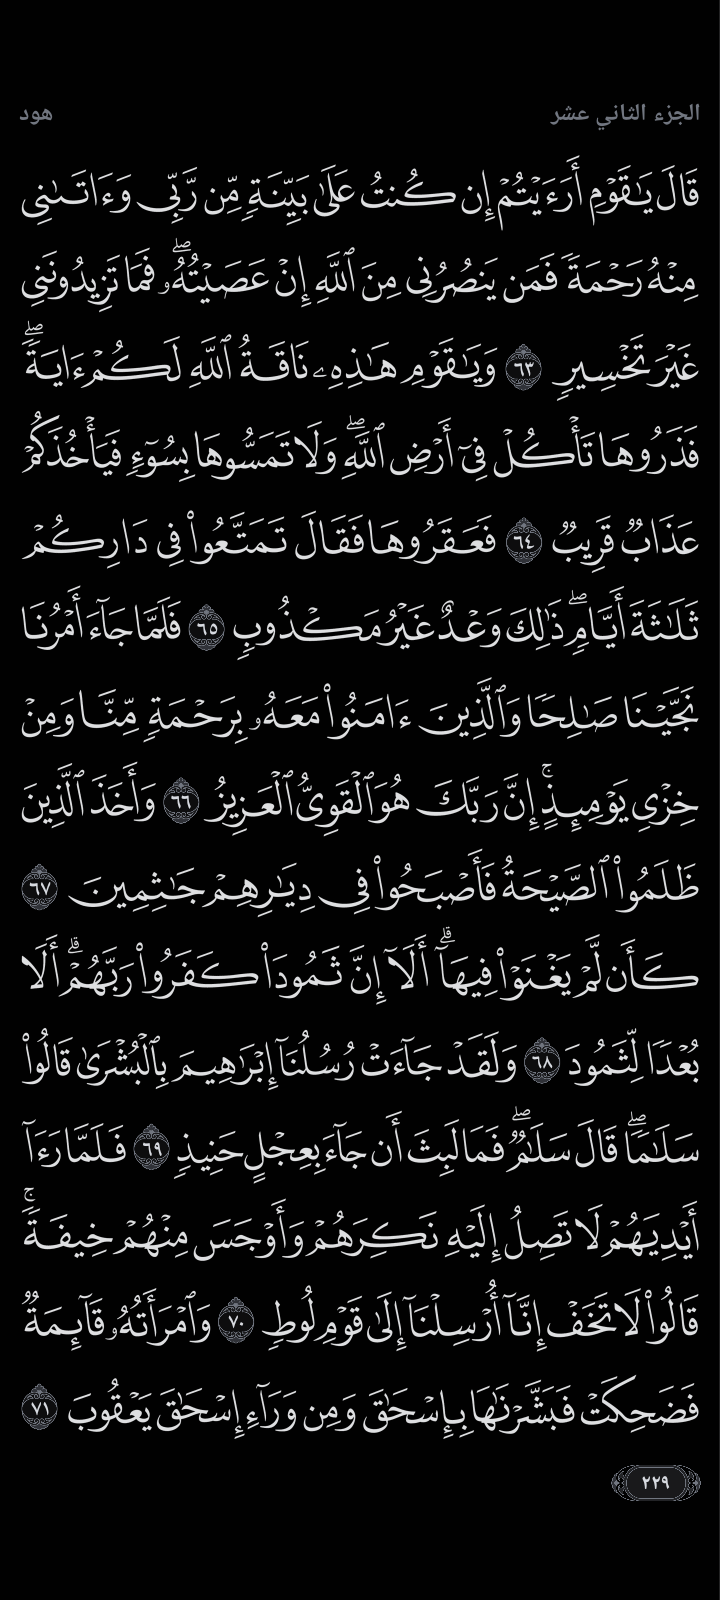 الجزء الثاني عشر
هود
قَالَ يَـٰقَوْمِ أَرَءَيْتُمْ إِن كُنتُ عَلَىٰ بَيِّنَةٍ مِّن رَّبِّى وَءَاتَىٰنِى
مِنْهُ رَحْمَةً فَمَن يَنصُرُنِى مِنَ ٱللَّهِ إِنْ عَصَيْتُهُۥ ۖ فَمَا تَزِيدُونَنِى
غَيْرَ تَخْسِيرٍ ٦٣ وَيَـٰقَوْمِ هَـٰذِهِۦ نَاقَةُ ٱللَّهِ لَكُمْ ءَايَةً ۖ
فَذَرُوهَا تَأْكُلْ فِىٓ أَرْضِ ٱللَّهِ ۖ وَلَا تَمَسُّوهَا بِسُوٓءٍ فَيَأْخُذَكُمْ
عَذَابٌ قَرِيبٌ ٦٤ فَعَقَرُوهَا فَقَالَ تَمَتَّعُوا۟ فِى دَارِكُمْ
ثَلَـٰثَةَ أَيَّامٍ ۖ ذَٰلِكَ وَعْدٌ غَيْرُ مَكْذُوبٍ ٦٥ فَلَمَّا جَآءَ أَمْرُنَا
نَجَّيْنَا صَـٰلِحًا وَٱلَّذِينَ ءَامَنُوا۟ مَعَهُۥ بِرَحْمَةٍ مِّنَّا وَمِنْ
خِزْىِ يَوْمِئِذٍ ۚ إِنَّ رَبَّكَ هُوَ ٱلْقَوِىُّ ٱلْعَزِيزُ ٦٦ وَأَخَذَ ٱلَّذِينَ
ظَلَمُوا۟ ٱلصَّيْحَةُ فَأَصْبَحُوا۟ فِى دِيَـٰرِهِمْ جَـٰثِمِينَ ٦٧
كَأَن لَّمْ يَغْنَوْا۟ فِيهَآ ۗ أَلَآ إِنَّ ثَمُودَا۟ كَفَرُوا۟ رَبَّهُمْ ۗ أَلَا
بُعْدًا لِّثَمُودَ ٦٨ وَلَقَدْ جَآءَتْ رُسُلُنَآ إِبْرَٰهِيمَ بِٱلْبُشْرَىٰ قَالُوا۟
سَلَـٰمًا ۖ قَالَ سَلَـٰمٌ ۖ فَمَا لَبِثَ أَن جَآءَ بِعِجْلٍ حَنِيذٍ ٦٩ فَلَمَّا رَءَآ
أَيْدِيَهُمْ لَا تَصِلُ إِلَيْهِ نَكِرَهُمْ وَأَوْجَسَ مِنْهُمْ خِيفَةً ۚ
قَالُوا۟ لَا تَخَفْ إِنَّآ أُرْسِلْنَآ إِلَىٰ قَوْمِ لُوطٍ ٧٠ وَٱمْرَأَتُهُۥ قَآئِمَةٌ
فَضَحِكَتْ فَبَشَّرْنَـٰهَا بِإِسْحَـٰقَ وَمِن وَرَآءِ إِسْحَـٰقَ يَعْقُوبَ ٧١
٢٢٩